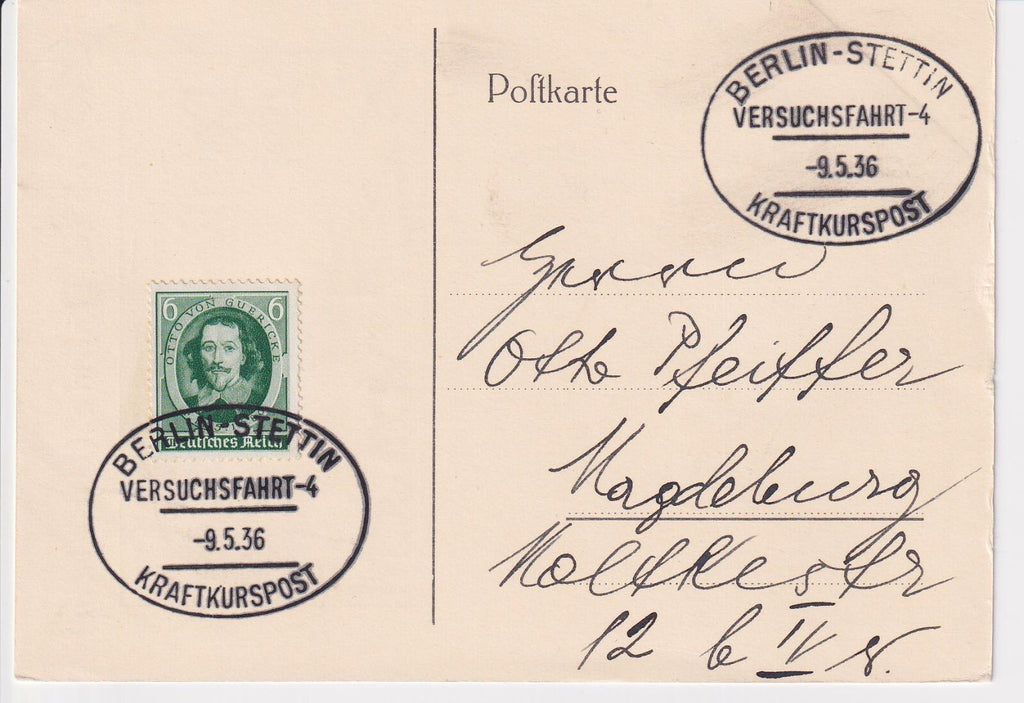 Poſtkarte
BERLIN-STETTIN
VERSUCHSFAHRT-4
-9.5.36
KRAFTKURSPOST
Herrn
Otto Pfeiffer
Magdeburg
Moltkestr
12 b IV r.
6 6
OTTO VON GUERICKE
Deutsches Reich
BERLIN-STETTIN
VERSUCHSFAHRT-4
-9.5.36
KRAFTKURSPOST